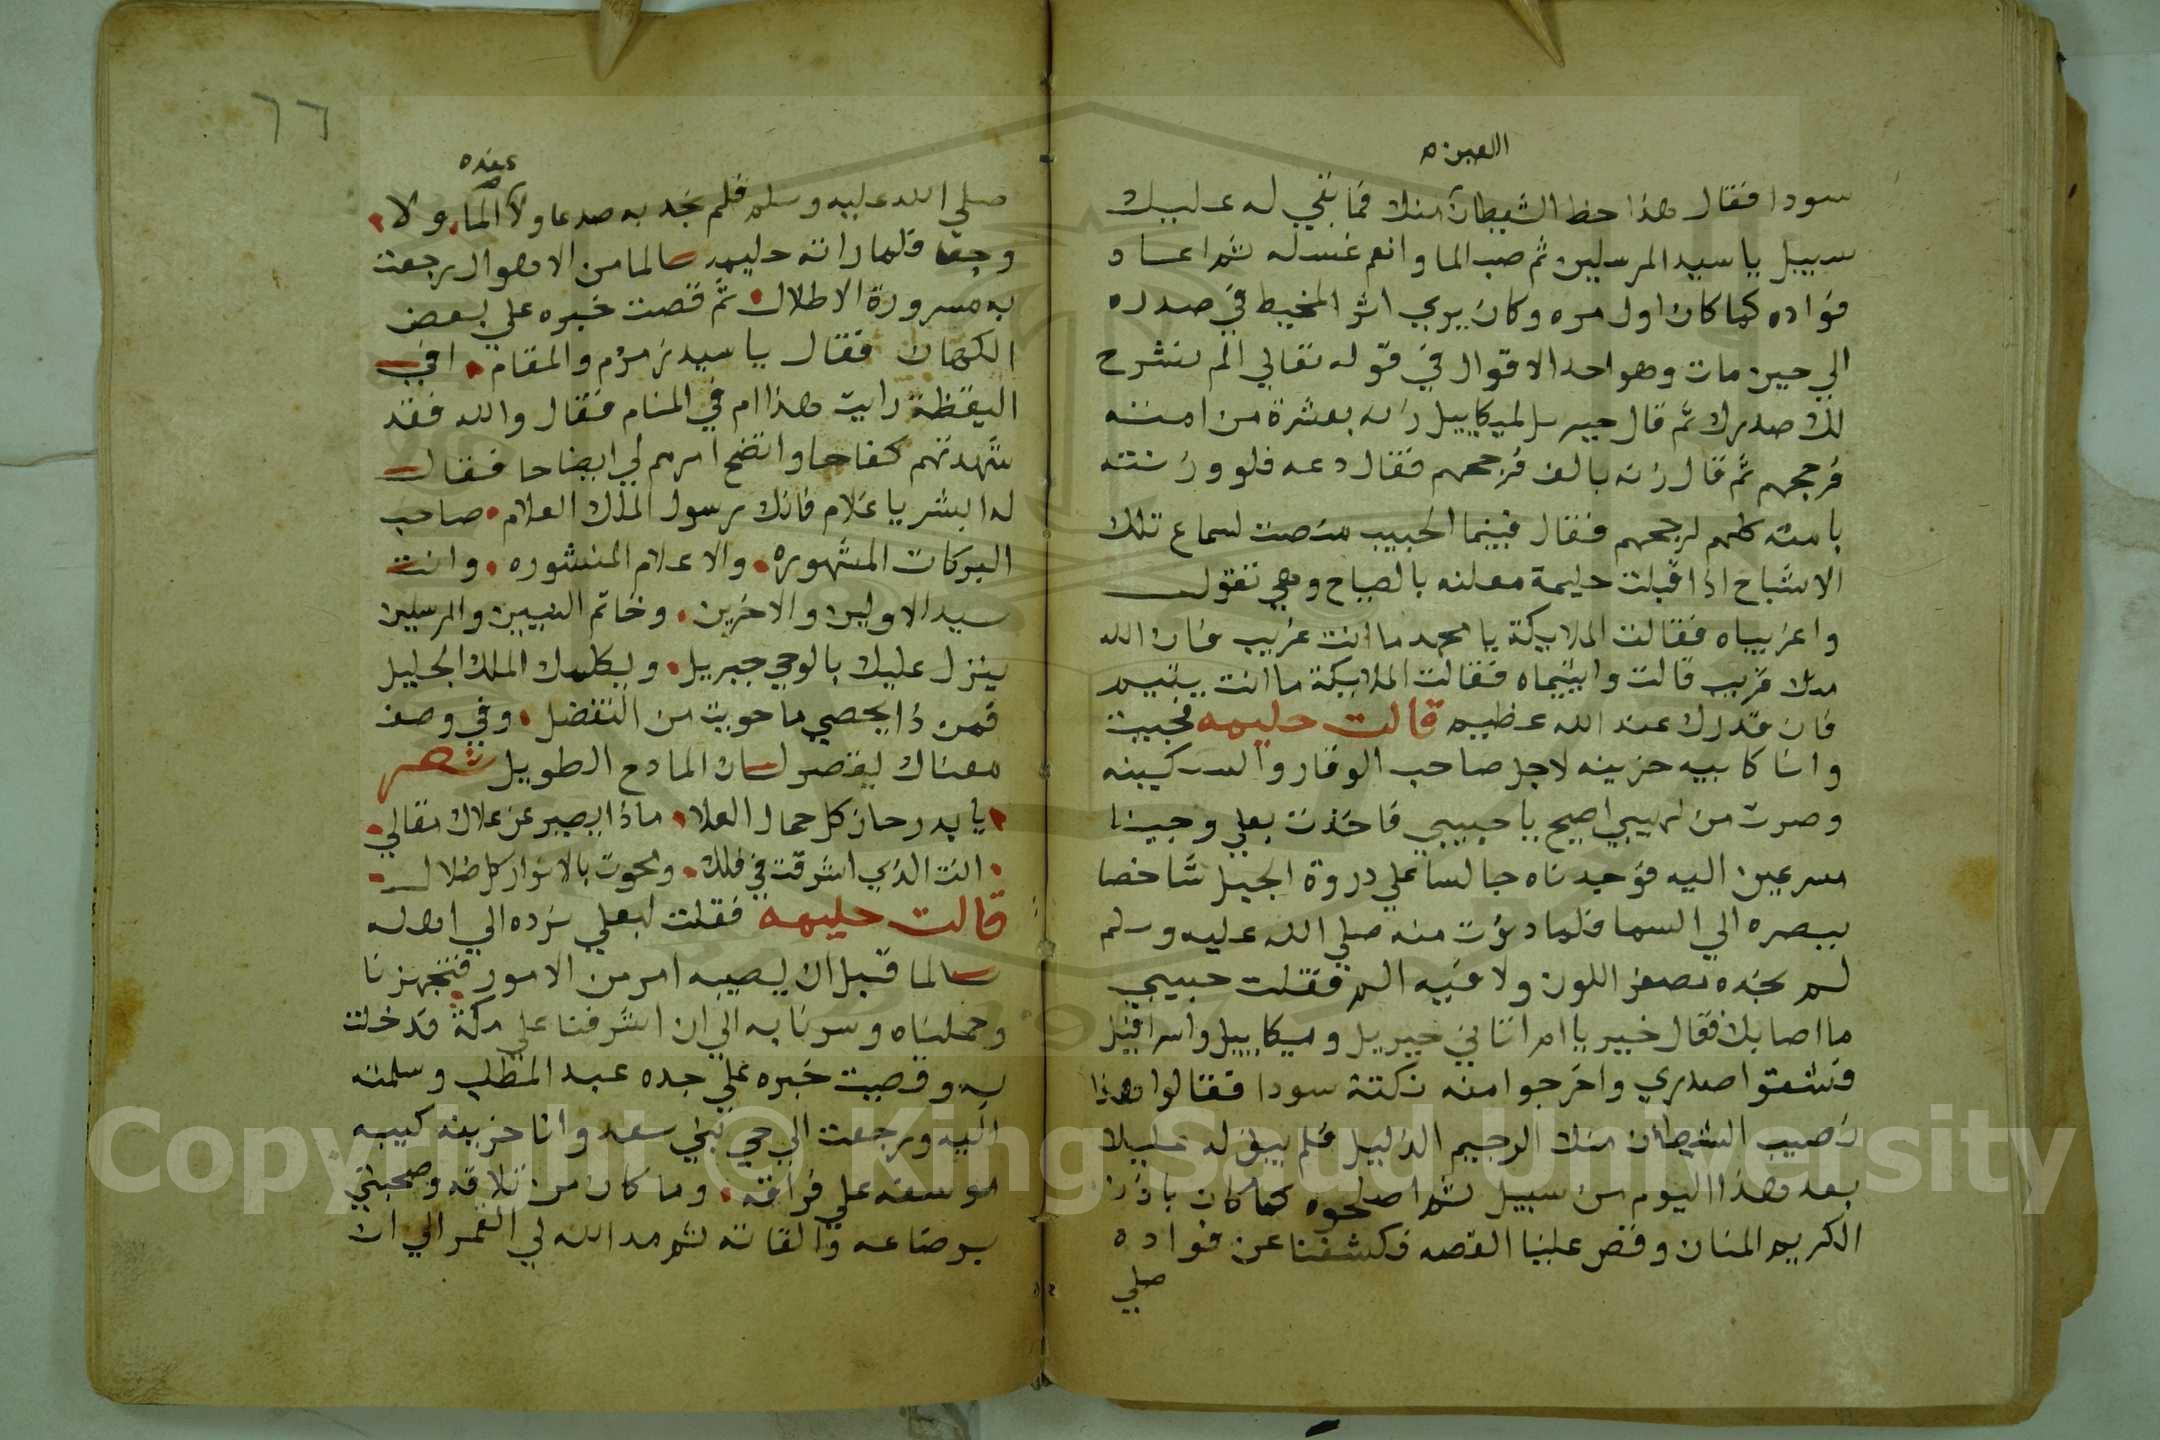 اللعين
سودا فقال هذا حظ الشيطان منك فما بقي له عليك
سبيل يا سيد المرسلين ثم صب الما وانعم غسله ثم اعاد
فواده كما كان اول مره وكان يري اثر المخيط في صدره
الي حين مات وهو احد الاقوال في قوله تعالي الم نشرح
لك صدرك ثم قال جبريل لميكاييل زنه بعشرة من امته
فرجحهم ثم قال زنه بالف فرجحهم فقال دعه فلو وزنته
بامته كلهم لرجحهم فقال فبينما الحبيب منصت لسماع تلك
الاشباح اذ اقبلت حليمة معلنه بالصياح وهي تقول
واغريباه فقالت الملايكة يا محمد ما انت غريب فان الله
منك قريب قالت وايتيماه فقالت الملايكة ما انت بيتيم
فان قدرك عند الله عظيم قالت حليمه فجيت
وانا كابيه حزينه لاجل صاحب الوقار والسكينه
وصرت من لهيبي اصيح يا حبيبي فاخذت بعلي وجينا
مسرعين اليه فوجدناه جالسا علي دروة الجبل شاخصا
ببصره الي السما فلما دنوت منه صلي الله عليه وسلم
لم نجده مصفر اللون ولا فيه الم فقلت حبيبي
ما اصابك فقال خير يا امر اتاني جبريل وميكاييل واسرافيل
فشقوا صدري واخرجوا منه نكتة سودا فقالوا هذا
نصيب الشيطان منك الرجيم الذليل فلم يبق له عليك
بعد هذا اليوم من سبيل ثم اصلحوه كما كان باذن
الكريم المنان وقص علينا القصه فكشفنا عن فواده
صلي
٦٦
عنده
صلي الله عليه وسلم فلم نجد به صدعا ولا الما ولا
وجعا فلما راته حليمه سالما من الاهوال رجعت
به مسرورة الاطلال ثم قصت خبره علي بعض
الكهان فقال يا سيد زمزم والمقام افي
اليقظة رايت هذا ام في المنام فقال والله فقد
شهدتهم كفاحا واتضح امرهم لي ايضاحا فقال
له ابشر يا غلام فانك رسول الملك العلام صاحب
البركات المشهوره والاعلام المنشوره وانت
سيد الاولين والاخرين وخاتم النبيين والمرسلين
ينزل عليك بالوحي جبريل ويكلمك الملك الجليل
فمن ذا يحصي ما حويت من التفضل وفي وصف
معناك يقصر لسان المادح الطويل شعر
يا بدر حاز كل جمال العلا ماذا يعبر عن علاك مقالي
انت الذي اشرقت في فلك ومحوت بالانوار كل ضلال
قالت حليمه فقلت لبعلي نرده الي اهله
سالما قبل ان يصيبه امر من الامور فتجهزنا
وحملناه وسرنا به الي ان اشرفنا علي مكة فدخلت
به وقصيت خبره علي جده عبد المطلب وسلمته
اليه ورجعت الي حي بني سعد وانا حزينه كيبه
موسفه علي فراقه وما كان من تلاقه وصحبتي
برضاعه والقاته ثم مد الله لي العمر الي ان
Copyright © King Saud University